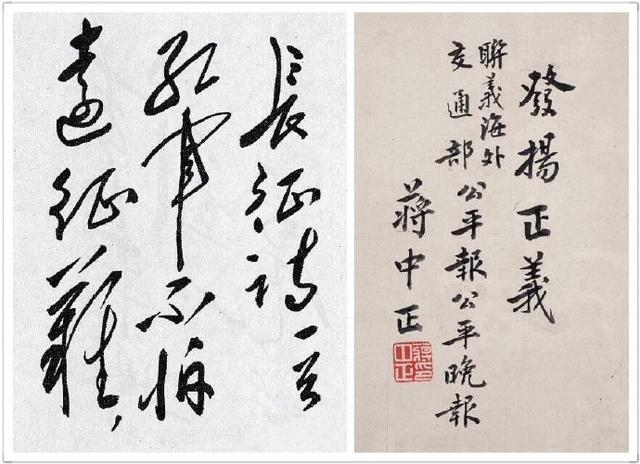 長征詩一首
紅軍不怕
遠征難，
發揚正義
聯義海外
交通部公平報公平晚報
蔣中正